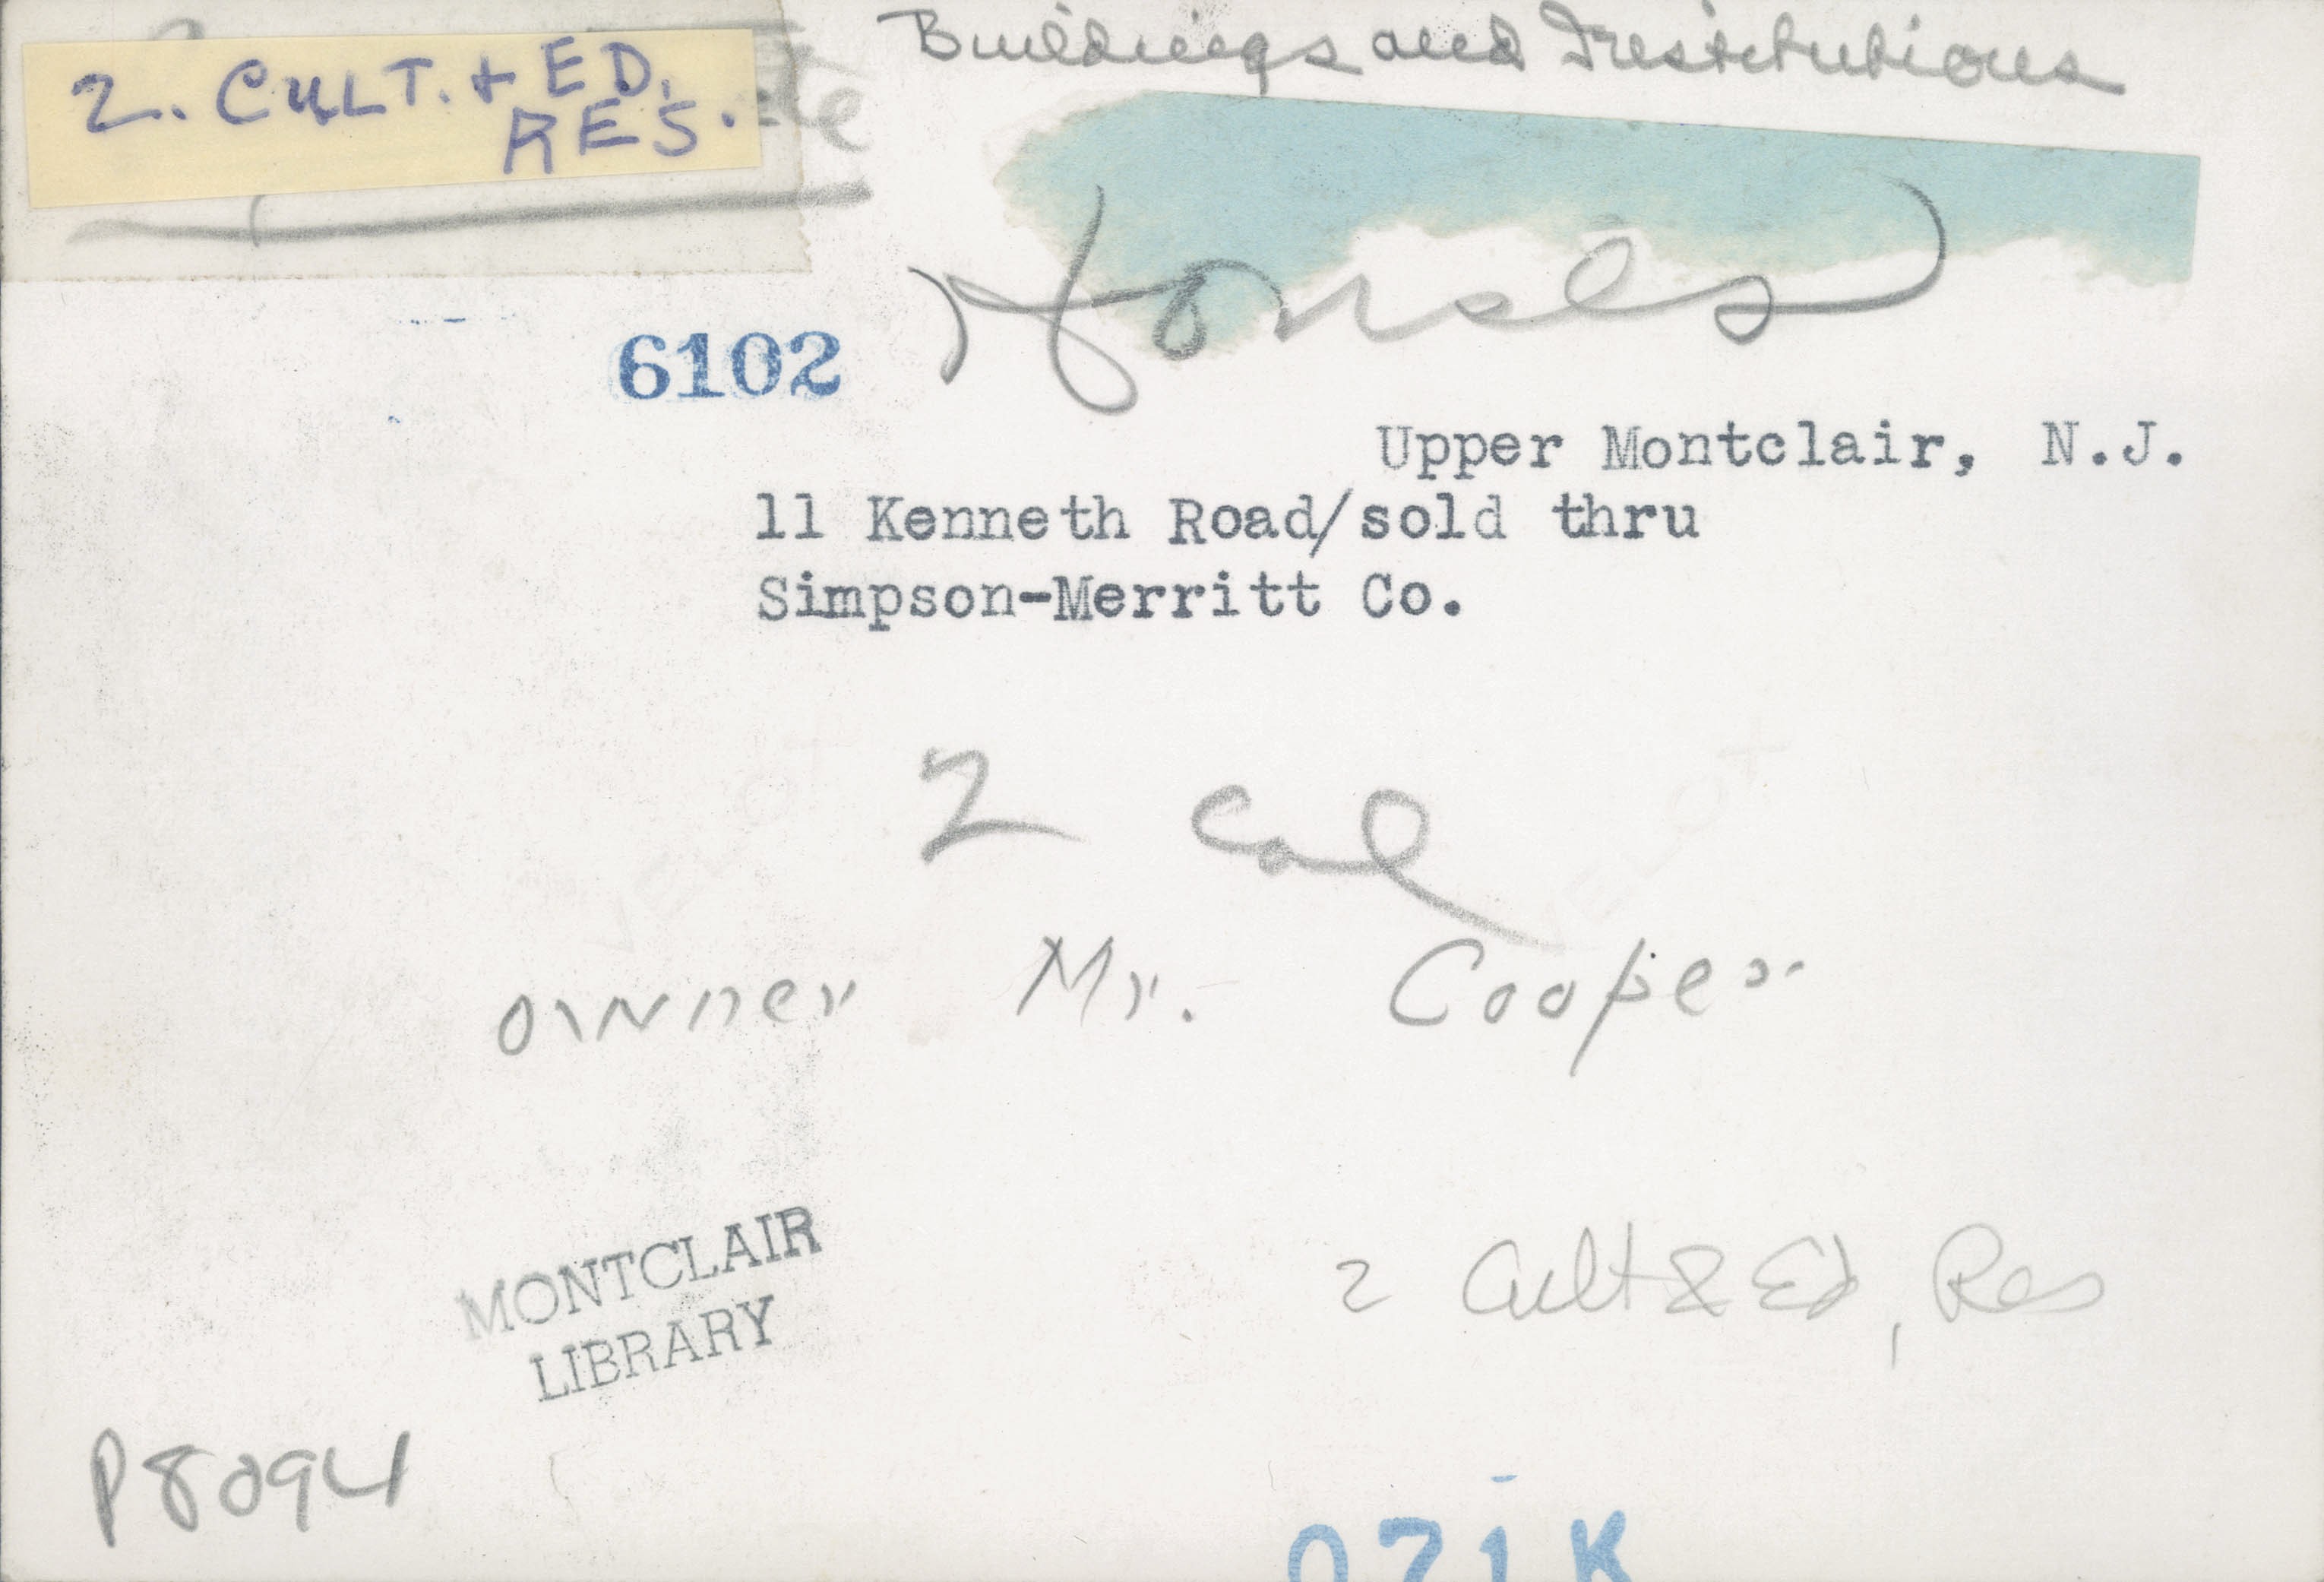 Buildings and Institutions
2. CULT. + ED.
RES.
Houses
6102
Upper Montclair, N.J.
11 Kenneth Road/sold thru
Simpson-Merritt Co.
2 Col
owner Mr. Cooper
MONTCLAIR
LIBRARY
2 Cult & Ed, Res
P8094
071K